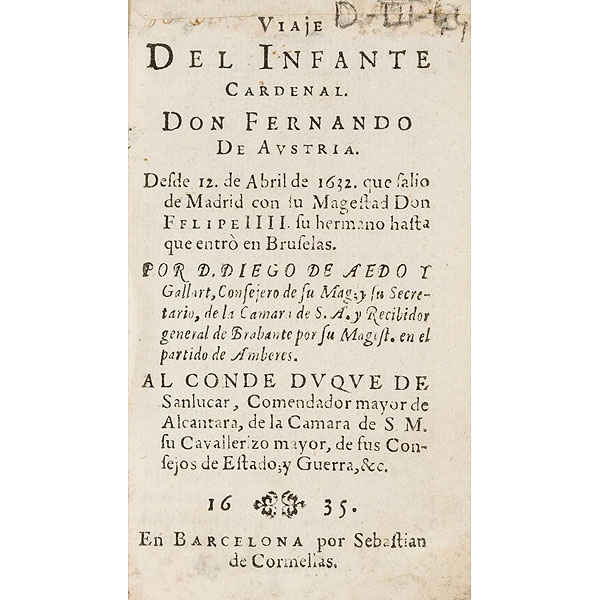 D-III-44
VIAJE
DEL INFANTE
CARDENAL.
DON FERNANDO
DE AVSTRIA.
Desde 12. de Abril de 1632. que ſalio
de Madrid con ſu Mageſtad Don
FFLIPE IIII. ſu hermano haſta
que entrò en Bruſelas.
POR D. DIEGO DE AEDO Y
Gallart, Conſejero de ſu Mag; y ſu Secre-
tario, de la Camara de S. A. y Recibidor
general de Brabante por ſu Mageſt. en el
partido de Amberes.
AL CONDE DVQVE DE
Sanlucar, Comendador mayor de
Alcantara, de la Camara de S M.
ſu Cavallerizo mayor, de ſus Con-
ſejos de Eſtado, y Guerra, &c.
16 35.
En BARCELONA por Sebaſtian
de Cormellas.